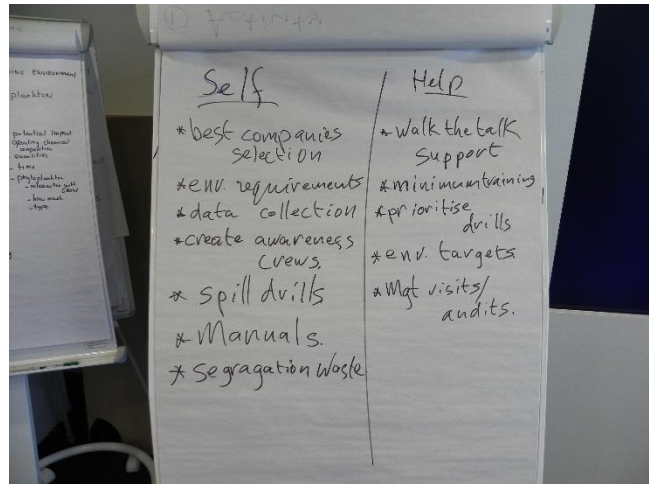 ① Activity
Self
*best companies
selection
*env. requirements
*data collection
*create awareness
crews.
* spill drills
* Manuals.
* segragation waste
Help
*Walk the talk
support
*minimum training
*prioritise
drills
*env. targets
*Mgt visits/
audits.
ENVIRONMENT
plankton
potential impact
chemical
composition
quantities
- time
- phytoplankton
- interaction with
- how much
- type